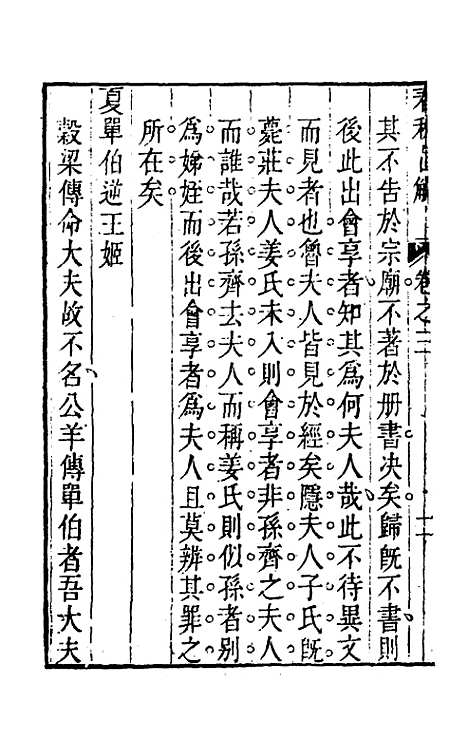 春秋 解 卷之二
其不告於宗廟不著於册書决矣歸旣不書則
後此出會享者知其爲何夫人哉此不待異文
而見者也魯夫人皆見於經矣隱夫人子氏旣
薨莊夫人姜氏未入則會享者非孫齊之夫人
而誰哉若孫齊去夫人而稱姜氏則似孫者別
爲娣姪而後出會享者爲夫人且莫辨其罪之
所在矣
夏單伯逆王姬
穀梁傳命大夫故不名公羊傳單伯者吾大夫